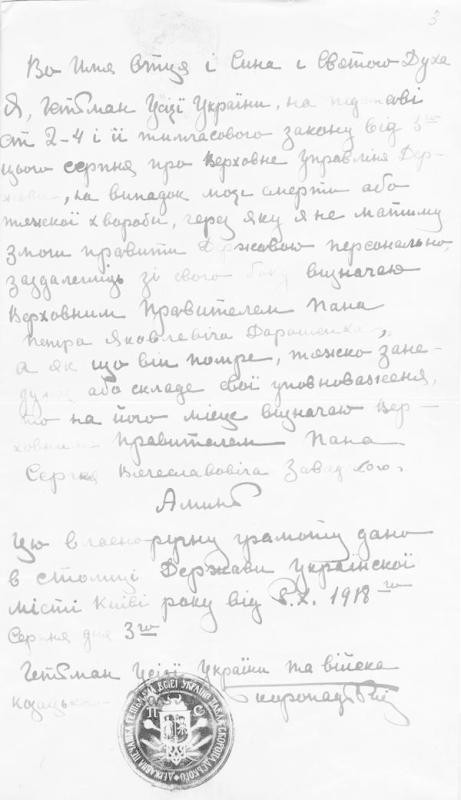 3
Во Имя Отця і Сина і Святого Духа
Я, Гетьман Усієї України, на підставі
ст 2-4 і її тимчасового закону від
цього серпня про Верховне Управління Дер-
жавою, на випадок моєї смерти або
тяжкої хвороби, через яку я не матиму
змоги правити Державою персонально,
заздалегідь зі свого боку визначаю
Верховним Правителем Пана
Петра Яковлевіча Дарошенка,
а як що він помре, тяжко зане-
дужає або складе свої уповноваження,
то на його місце визначаю Вер-
ховним Правителем Пана
Сергея Вячеславовіча Завадського.
Аминь
Цю власноручну грамоту дано
в столиці Держави Української
місті Київі року від Р.Х. 1918 го
Серпня дня 3го
Гетьман Усієї України та війська
козацького Скоропадський